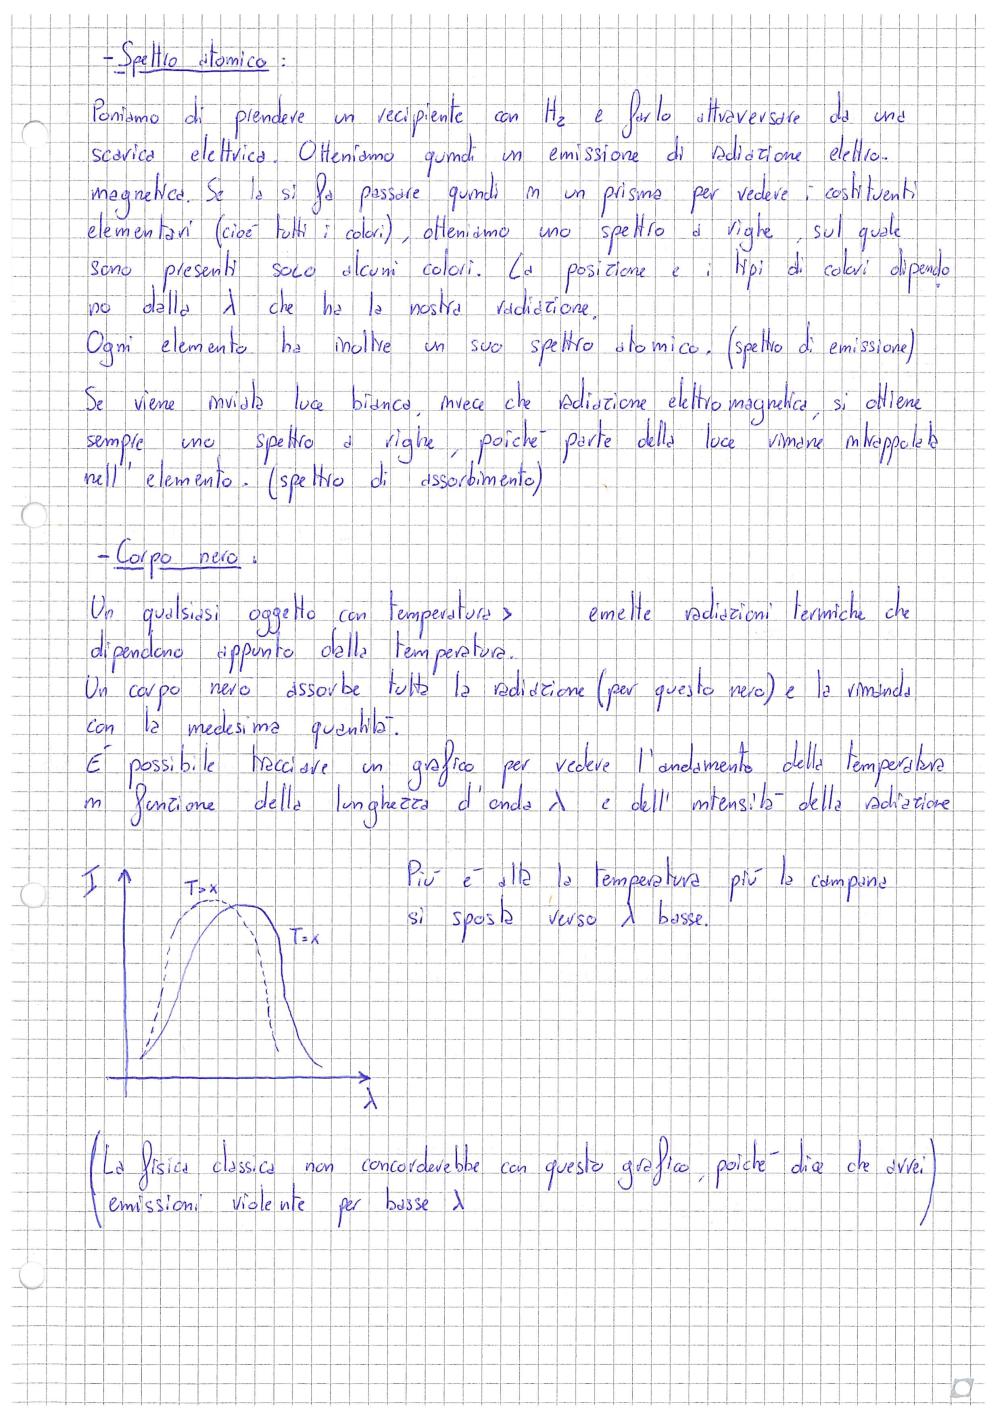 - Spettro atomico :
Poniamo di prendere un recipiente con H₂ e farlo attraversare da una
scarica elettrica. Otteniamo quindi un emissione di radiazione elettro-
magnetica. Se la si fa passare quindi in un prisma per vedere i costituenti
elementari (cioè tutti i colori), otteniamo uno spettro a righe, sul quale
sono presenti solo alcuni colori. La posizione e i tipi di colori dipendo
no dalla λ che ha la nostra radiazione.
Ogni elemento ha inoltre un suo spettro atomico. (spettro di emissione)
Se viene inviata luce bianca, invece che radiazione elettromagnetica, si ottiene
sempre uno spettro a righe, poichè parte della luce rimane intrappolata
nell' elemento. (spettro di assorbimento)
- Corpo nero :
Un qualsiasi oggetto con temperatura > emette radiazioni termiche che
dipendono appunto dalla temperatura.
Un corpo nero assorbe tutta la radiazione (per questo nero) e la rimanda
con la medesima quantità.
È possibile tracciare un grafico per vedere l'andamento della temperatura
in funzione della lunghezza d'onda λ e dell' intensità della radiazione
I
T>x
T=x
λ
Più è alta la temperatura più la campana
si sposta verso λ basse.
(La fisica classica non concorderebbe con questo grafico, poichè dice che avrei
emissioni violente per basse λ)